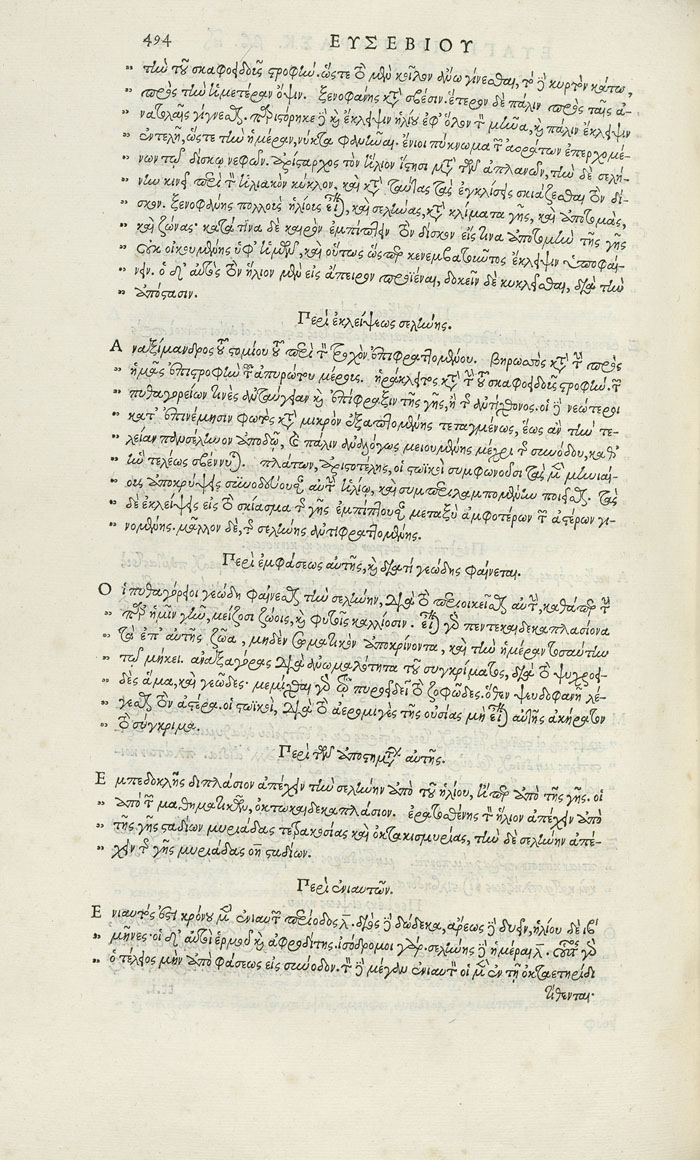 494 ΕΥΣΕΒΙΟΥ
" τὴν τοῦ σκαφοειδοῦς στροφὴν. ὥστε τὸ μὲν κοῖλον ἄνω γίνεσθαι, τὸ δὲ κυρτὸν κάτω,
" πρὸς τὴν ἡμετέραν ὄψιν. ξενοφάνης κατὰ σβέσιν. ἕτερον δὲ πάλιν πρὸς ταῖς ἀ-
" νατολαῖς γίγνεσθαι. παριστόρηκε δὲ καὶ ἔκλειψιν ἡλίου ἐφ' ὅλον τὸν μῆνα, καὶ πάλιν ἔκλειψιν
" ἐντελῆ, ὥστε τὴν ἡμέραν, νύκτα φανῆναι. ἔνιοι πύκνωμα τῶν ἀοράτων ἐπερχομέ-
" νων τῷ δίσκῳ νεφῶν. ἀρίσταρχος τὸν ἥλιον ἵστησι μετὰ τῶν ἀπλανῶν, τὴν δὲ σελή-
" νην κινεῖ περὶ τὸν ἡλιακὸν κύκλον, καὶ κατὰ ταύτας τὰς ἐγκλίσεις σκιάζεσθαι τὸν δί-
" σκον. ξενοφάνης πολλοὺς ἡλίους εἶναι, καὶ σελήνας, κατὰ κλίματα γῆς, καὶ ἀποτομὰς,
" καὶ ζώνας· κατά τινα δὲ καιρὸν ἐμπίπτειν τὸν δίσκον εἴς τινα ἀποτομὴν τῆς γῆς
" οὐκ οἰκουμένης ὑφ' ἡμῶν, καὶ οὕτως ὥσπερ κενεμβατοῦντος ἔκλειψιν ὑποφαί-
" νειν. ὁ δ' αὐτὸς τὸν ἥλιον μὲν εἰς ἄπειρον προϊέναι, δοκεῖν δὲ κυκλεῖσθαι, διὰ τὴν
" ἀπόστασιν.
Περὶ ἐκλείψεως σελήνης.
Α ναξίμανδρος τοῦ στομίου τοῦ περὶ τὸν τροχὸν ἐπιφραττομένου. βηρωσσὸς κατὰ τὴν πρὸς
" ἡμᾶς ἐπιστροφὴν τοῦ ἀπυρώτου μέρους. ἡράκλειτος κατὰ τὴν τοῦ σκαφοειδοῦς στροφὴν. τῶν
" πυθαγορείων τινὲς ἀνταύγειαν καὶ ἐπίφραξιν τῆς γῆς, ἢ τῆς ἀντίχθονος. οἱ δὲ νεώτεροι
" κατ' ἐπινέμησιν φωτὸς κατὰ μικρὸν ἐξαπτομένης τεταγμένως, ἕως ἂν τὴν τε-
" λείαν πανσέληνον ἀποδῷ, καὶ πάλιν ἀναλόγως μειουμένης μέχρι τῆς συνόδου, καθ'
" ἣν τελέως σβέννυται. πλάτων, ἀριστοτέλης, οἱ στωϊκοὶ συμφωνοῦσι τὰς μὲν μηνιαί-
" ους ἀποκρύψεις συνοδεύουσαν αὐτὴν ἡλίῳ, καὶ συμπεριλαμπομένην ποιεῖσθαι. τὰς
" δὲ ἐκλείψεις εἰς τὸ σκίασμα τῆς γῆς ἐμπίπτουσαν μεταξὺ ἀμφοτέρων τῶν ἀστέρων γι-
" νομένης. μᾶλλον δὲ, τῆς σελήνης ἀντιφραττομένης.
Περὶ ἐμφάσεως αὐτῆς, καὶ διατί γεώδης φαίνεται.
Ο ἱ πυθαγόρειοι γεώδη φαίνεσθαι τὴν σελήνην, διὰ τὸ περιοικεῖσθαι αὐτὴν, καθάπερ τὴν
" παρ' ἡμῖν γῆν, μείζοσι ζώοις, καὶ φυτοῖς καλλίοσιν. εἶναι γὰρ πεντεκαιδεκαπλασίονα
" τὰ ἐπ' αὐτῆς ζῶα, μηδὲν περματικὸν ἀποκρίνοντα, καὶ τὴν ἡμέραν τοσαύτην
" τῷ μήκει. ἀναξαγόρας διὰ ἀνωμαλότητα τοῦ συγκρίματος, διὰ τὸ ψυχροει-
" δὲς ἅμα, καὶ γεῶδες· μεμίχθαι γὰρ τῷ πυροειδεῖ τὸ ζοφῶδες. ὅθεν ψευδοφανῆ λέ-
" γεσθαι τὸν ἀστέρα. οἱ στωϊκοὶ, διὰ τὸ ἀερομιγὲς τῆς οὐσίας μὴ εἶναι αὐτῆς ἀκήρατον
" τὸ σύγκριμα.
Περὶ τῶν ἀποστημάτων αὐτῆς.
Ε μπεδοκλῆς διπλάσιον ἀπέχειν τὴν σελήνην ἀπὸ τοῦ ἡλίου, ἥπερ ἀπὸ τῆς γῆς. οἱ
" ἀπὸ τῶν μαθηματικῶν, ὀκτωκαιδεκαπλάσιον. ἐρατοσθένης τὸν ἥλιον ἀπέχειν ἀπὸ
" τῆς γῆς σταδίων μυριάδας τετρακοσίας καὶ ὀκτακισμυρίας, τὴν δὲ σελήνην ἀπέ-
" χειν τῆς γῆς μυριάδας οη σταδίων.
Περὶ ἐνιαυτῶν.
Ε νιαυτός ἐστι κρόνου μὲν ἐνιαυτῶν περίοδος λ. διὸς δὲ δώδεκα, ἄρεως δὲ δυεῖν, ἡλίου δὲ ιβ'
" μῆνες· οἱ δ' αὐτοὶ ἑρμοῦ καὶ ἀφροδίτης. ἰσόδρομοι γάρ. σελήνης δὲ ἡμέραι λ. οὗτος γὰρ
" ὁ τέλειος μὴν ἀπὸ φάσεως εἰς σύνοδον. τὸν δὲ μέγαν ἐνιαυτὸν οἱ μὲν ἐν τῇ ὀκταετηρίδι
τίθενται·